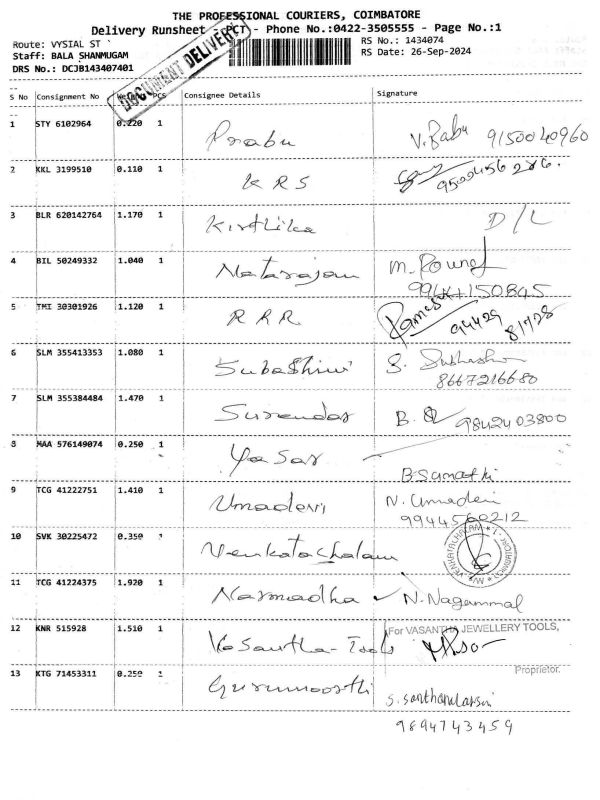 THE PROFESSIONAL COURIERS, COIMBATORE
Delivery Runsheet - PCT - Phone No.:0422-3505555 - Page No.:1
Route: VYSIAL ST
RS No.: 1434074
Staff: BALA SHANMUGAM
RS Date: 26-Sep-2024
DRS No.: DCJB143407401
DOCUMENT DELIVERY
S No Consignment No PCS Consignee Details Signature
1 STY 6102964 0.220 1 Prabu V. Babu 9150040960
2 KKL 3199510 0.110 1 KRS
3 BLR 620142764 1.170 1 Kirthika D/L
4 BIL 50249332 1.040 1 Natarajan M.
5 TMI 30301926 1.120 1 RRR
6 SLM 355413353 1.080 1 Subashini S.
8667216680
7 SLM 355384484 1.470 1 Surendar B. 9842403800
8 MAA 576149074 0.250 1 Yasar
B Sumathi
9 TCG 41222751 1.410 1 Umadevi N. Umadevi
9944560212
10 SVK 30225472 0.350 Venkatachalam
11 TCG 41224375 1.920 1 Narmadha N. Nagammal
12 KNR 515928 1.510 1 Vasantha-Tools For VASANTHA JEWELLERY TOOLS,
Proprietor.
13 KTG 71453311 0.250 Gurumoorthi S.
9894743459